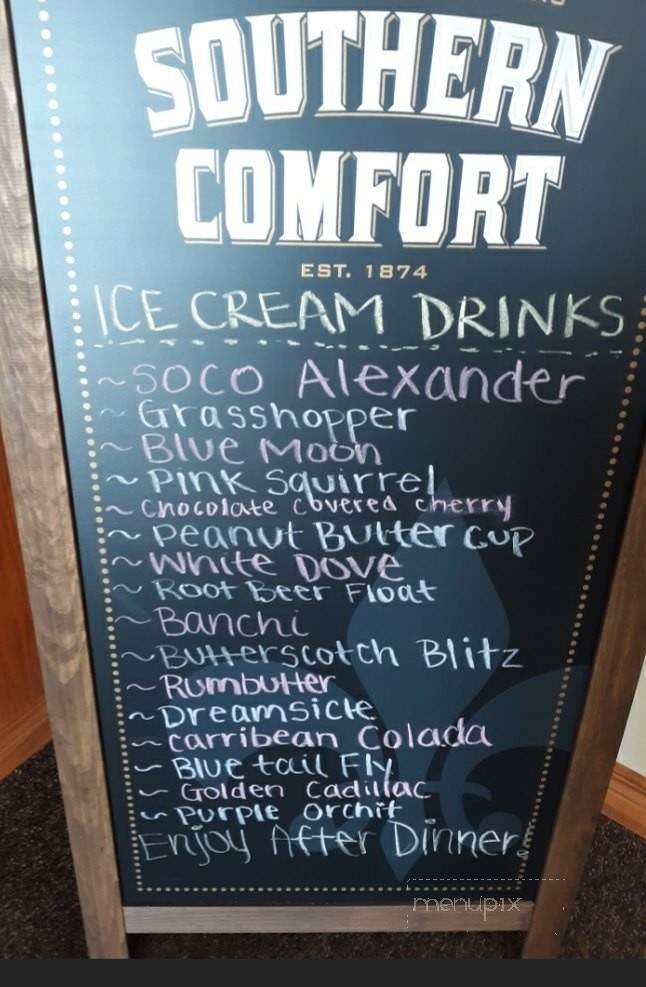 SOUTHERN
COMFORT
EST. 1874
ICE CREAM DRINKS
~ SOCO Alexander
~ Grasshopper
~ Blue Moon
~ Pink Squirrel
~ Chocolate covered cherry
~ Peanut Butter Cup
~ White Dove
~ Root Beer Float
~ Banchi
~ Butterscotch Blitz
~ Rumbutter
~ Dreamsicle
~ Carribean Colada
~ Blue tail Fly
~ Golden Cadillac
~ Purple Orchit
Enjoy After Dinner
menupix